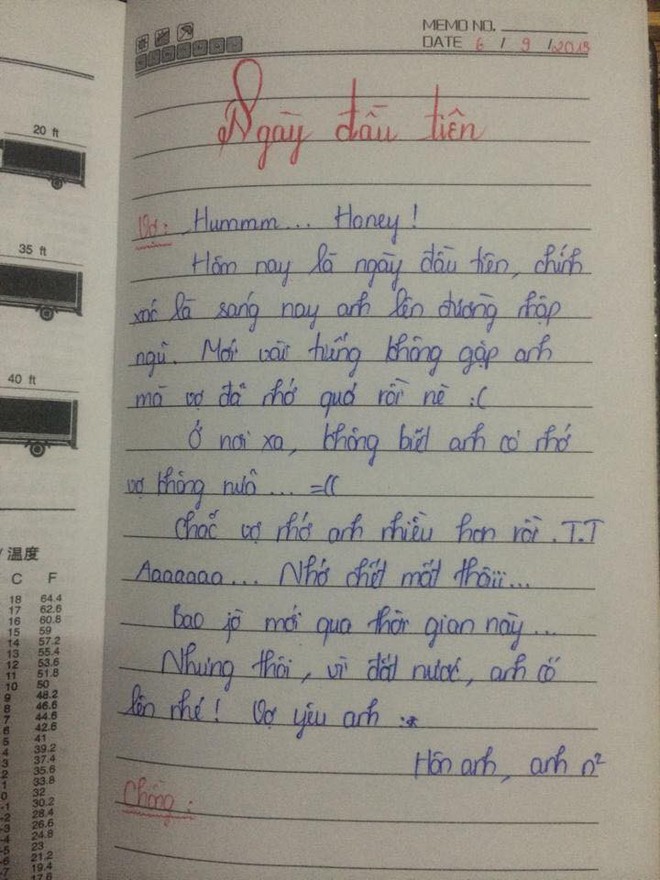 MEMO NO.
DATE 6 / 9 / 2015
Ngày đầu tiên
Vợ: Hummm... Honey!
Hôm nay là ngày đầu tiên, chính
xác là sáng nay anh lên đường nhập
ngũ. Mới vài tiếng không gặp anh
mà vợ đã nhớ quá rồi nè :(
Ở nơi xa, không biết anh có nhớ
vợ không nữa... =((
Chắc vợ nhớ anh nhiều hơn rồi. T.T
Aaaaaaa... Nhớ chết mất thôiii...
Bao jờ mới qua thời gian này...
Nhưng thôi, vì đất nước, anh cố
lên nhé! Vợ yêu anh :*
Hôn anh, anh n²
Chồng:
20 ft
35 ft
40 ft
/ 温度
C F
18 64.4
17 62.6
16 60.8
15 59
14 57.2
13 55.4
12 53.6
11 51.8
10 50
9 48.2
8 46.6
7 44.6
6 42.6
5 41
4 39.2
3 37.4
2 35.6
1 33.8
0 32
-1 30.2
-2 28.4
-3 26.6
-4 24.8
-5 23
-6 21.2
-7 19.4
17.6